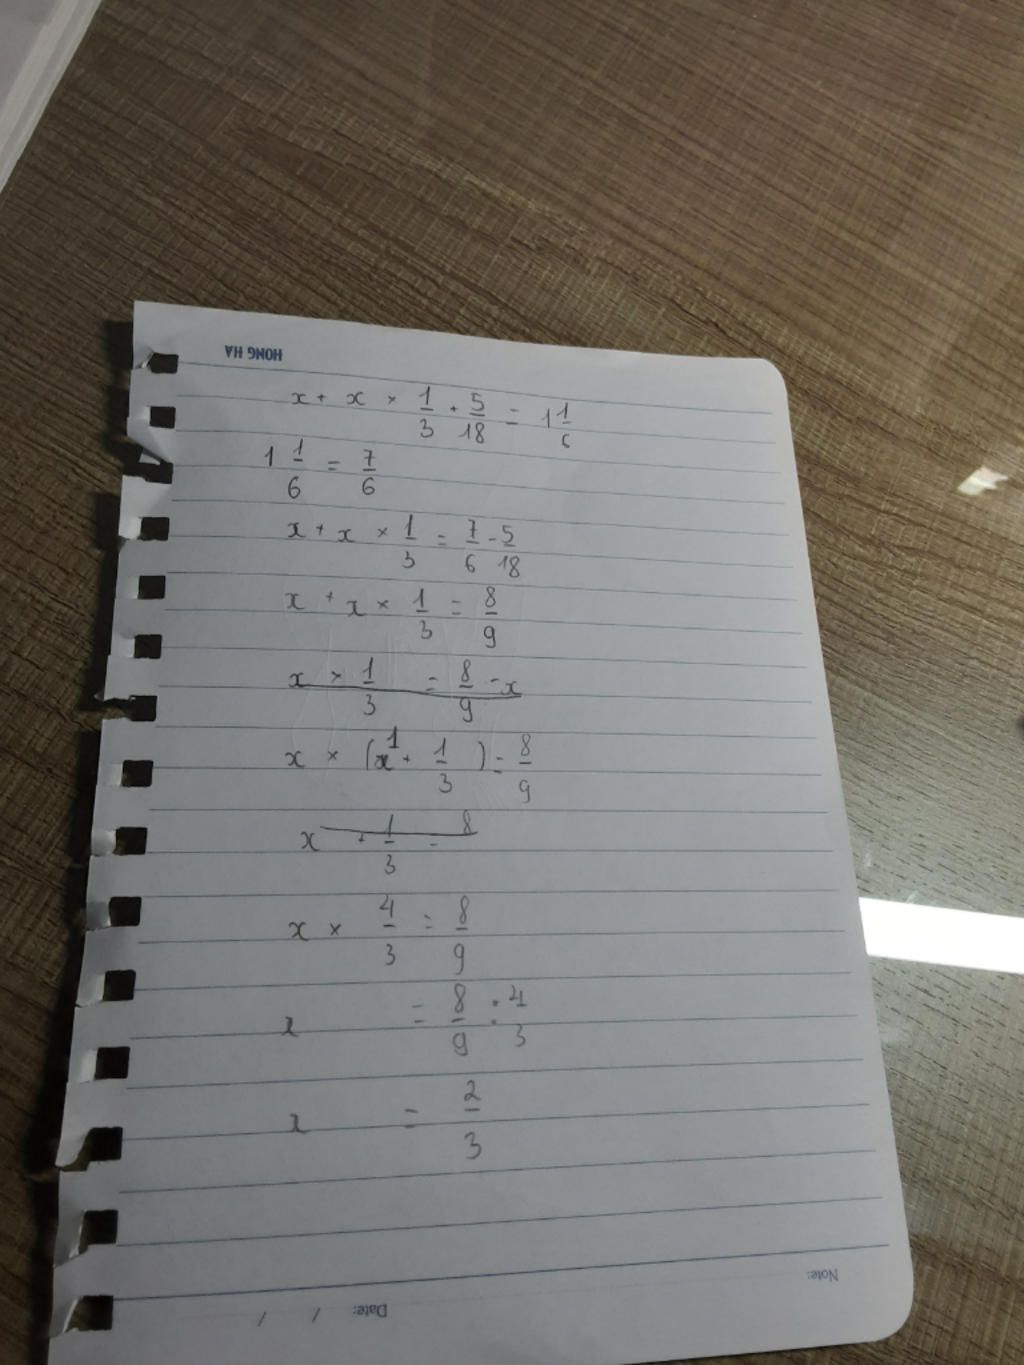 HONG HA
x + x × 1/3 + 5/18 = 1 1/6
1 1/6 = 7/6
x + x × 1/3 = 7/6 - 5/18
x + x × 1/3 = 8/9
x × 1/3 = 8/9 - x
x × (1 + 1/3) = 8/9
x + 1/3 = 8
x × 4/3 = 8/9
x = 8/9 : 4/3
x = 2/3
Note:
Date: / /